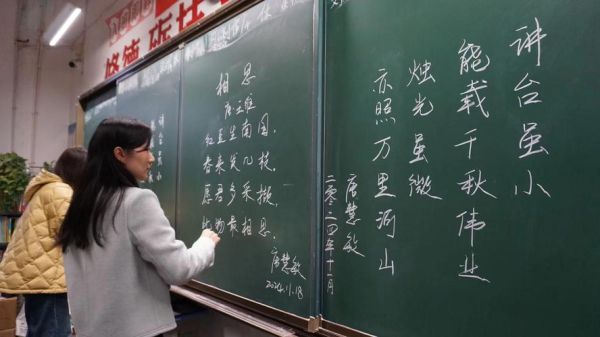 相思
唐王维
红豆生南国，
春来发几枝。
愿君多采撷，
物最相思。
唐慧敏
2024.11.18
讲台虽小
能载千秋伟业
烛光虽微
亦照万里河山
唐慧敏
二零二四年十一月